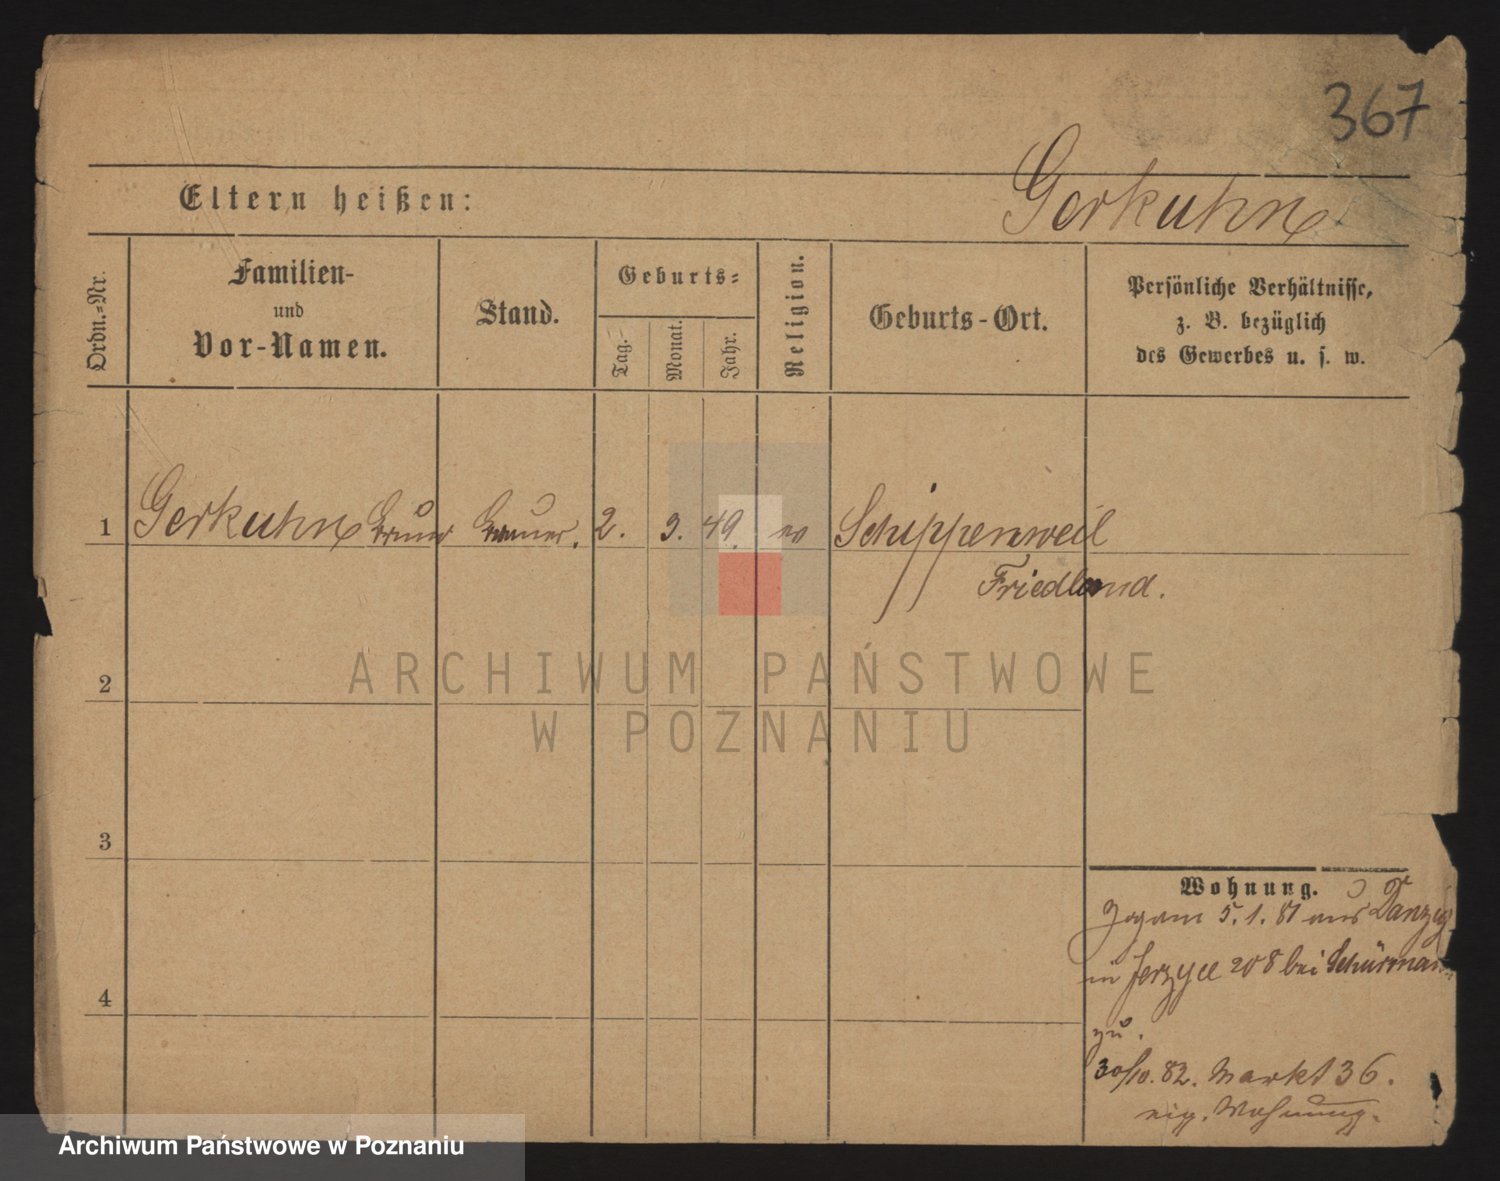 367
Eltern heißen:
Gerkuhn
Ordn.-Nr.
Familien-
und
Vor-Namen.
Stand.
Geburts-
Tag.
Monat.
Jahr.
Religion.
Geburts-Ort.
Persönliche Verhältnisse,
z. B. bezüglich
des Gewerbes u. s. w.
1 Gerkuhn Brauer. 2. 3. 49. ev Schippenweil
Friedland.
2
3
4
ARCHIWUM PAŃSTWOWE
W POZNANIU
Wohnung.
Zog am 5.1.81 aus Danzig
in Jerzyce 208 bei Schürmann
zu.
30/10.82. Markt 36.
eig. Wohnung.
Archiwum Państwowe w Poznaniu